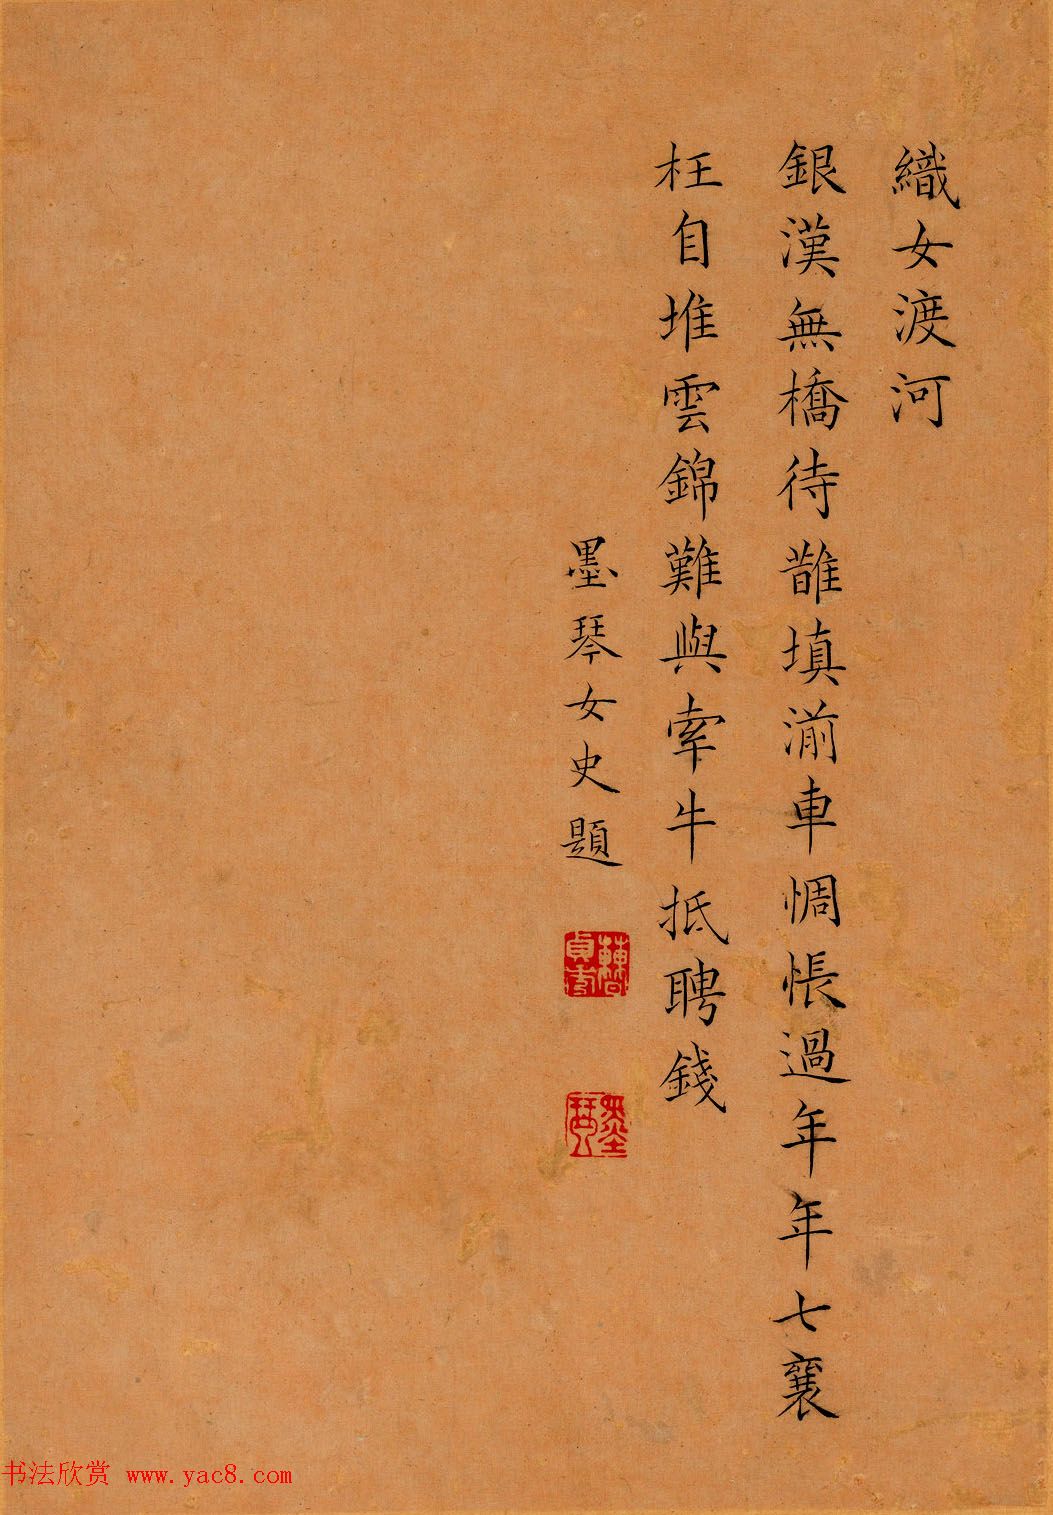 織女渡河
銀漢無橋待誰填湔車惆悵過年年七襄
枉自堆雲錦難與牽牛抵聘錢
墨琴女史題
墨琴
书法欣赏 www.yac8.com